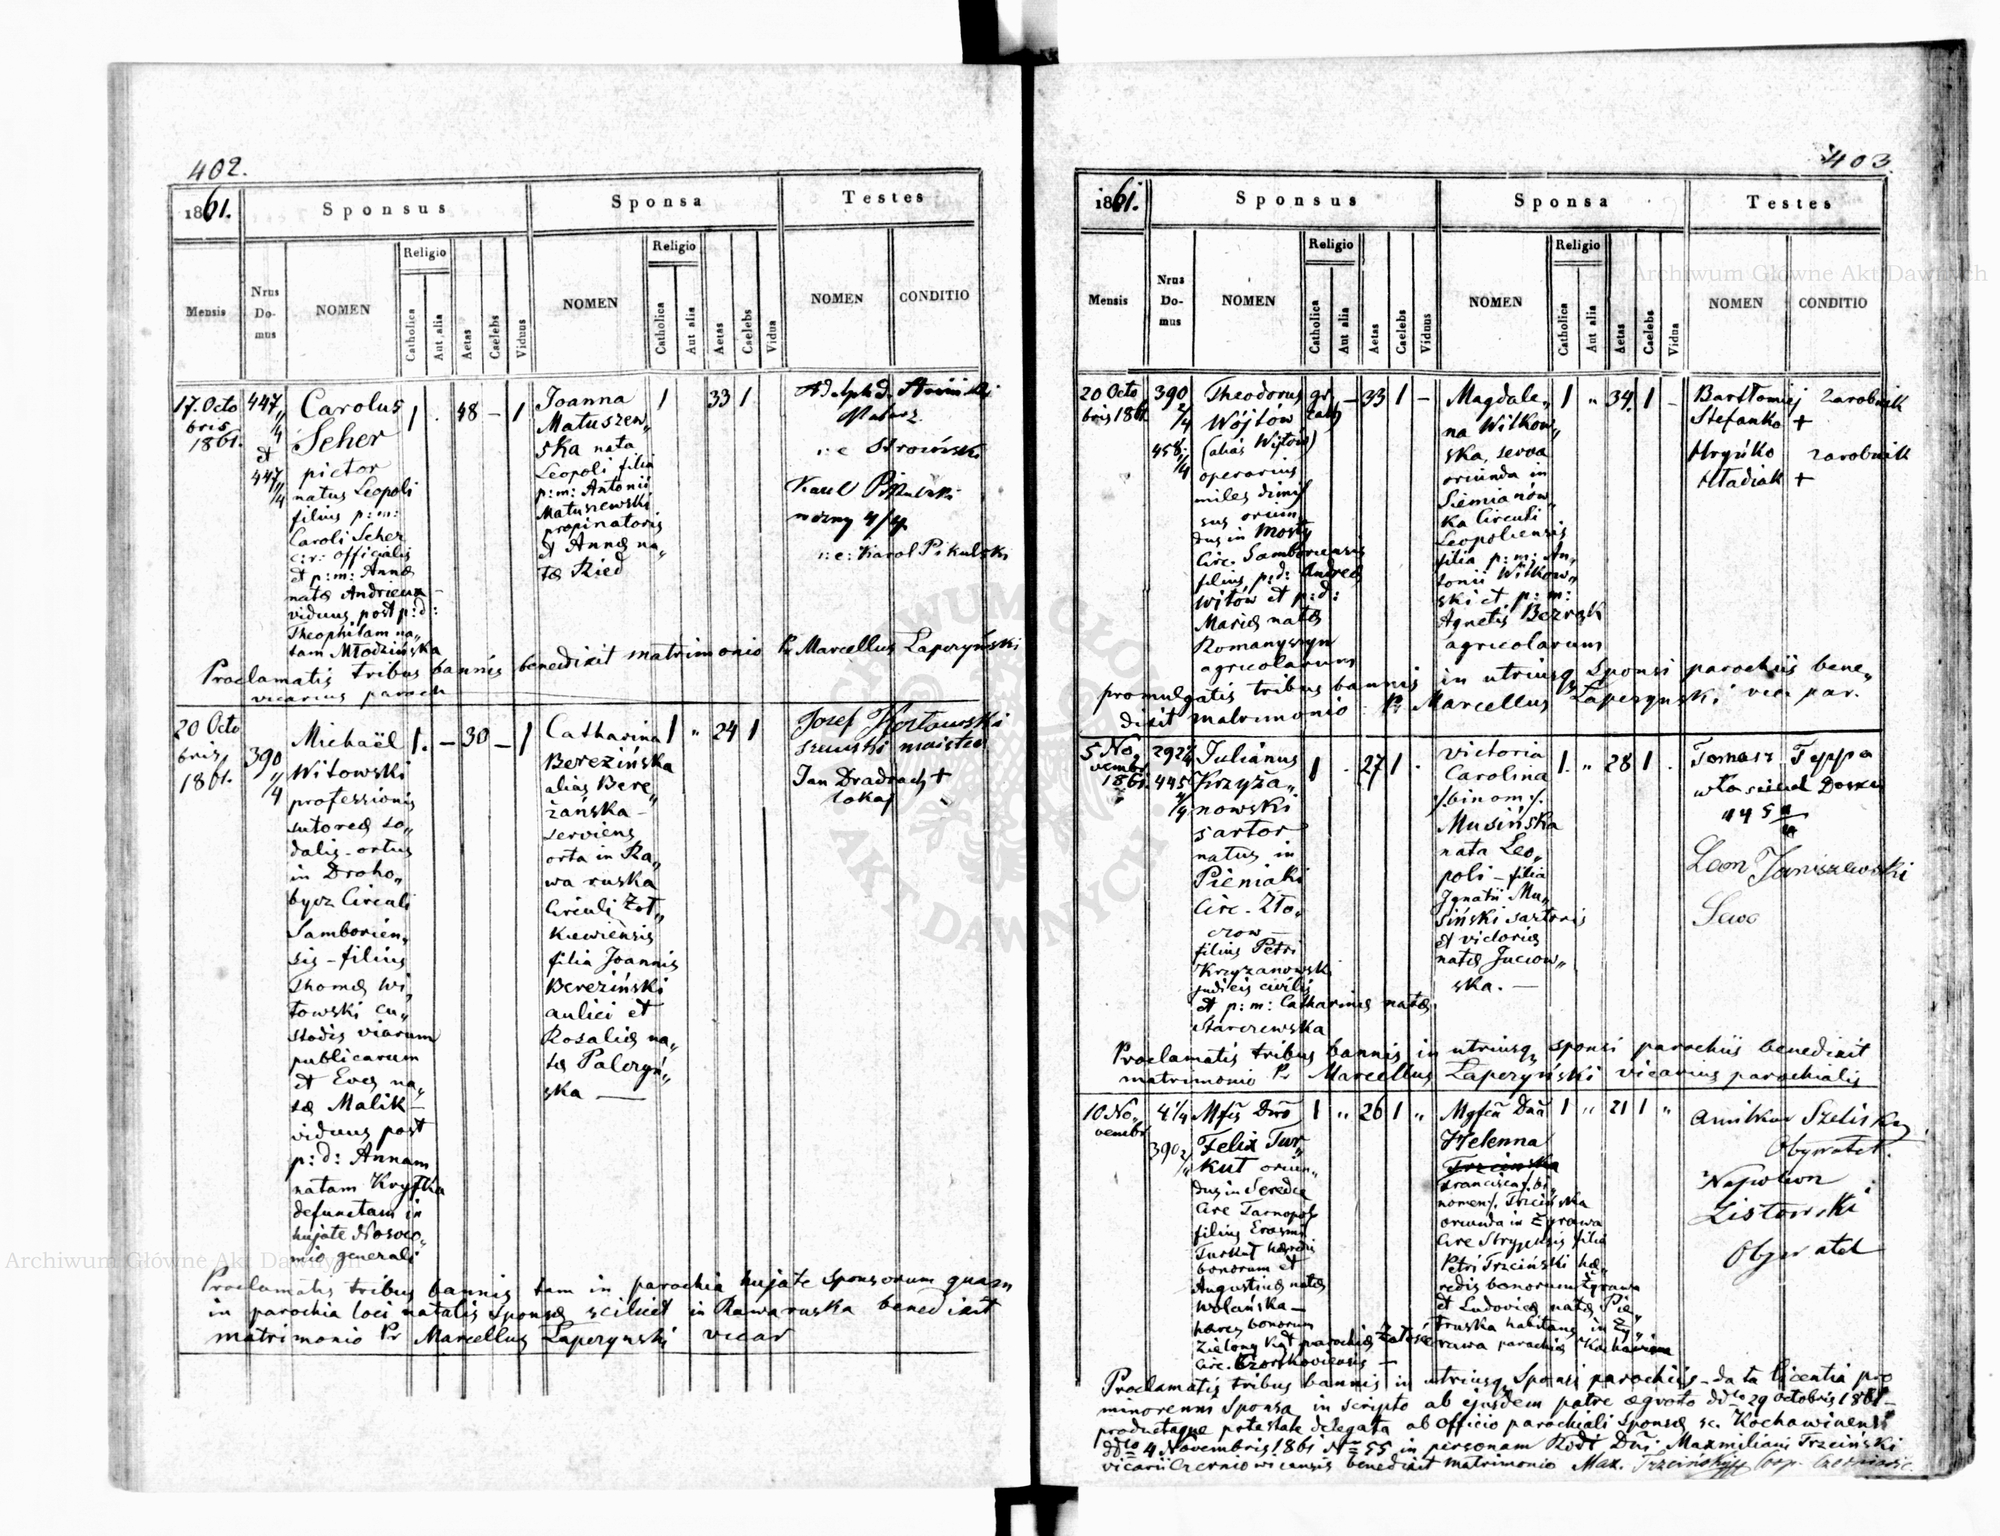 402.
1861.
Sponsus
Sponsa
Testes
Mensis
Nrus Do-mus
NOMEN
Religio
Catholica
Aut alia
Aetas
Caelebs
Viduus
NOMEN
Religio
Catholica
Aut alia
Aetas
Caelebs
Vidua
NOMEN
CONDITIO
17. Octo
bris
1861.
447
4/4
et
447
4/4
Carolus
Scher
pictor
natus Leopoli
filius p: m:
Caroli Scher
c: r: officialis
et p: m: Annæ
natæ Andrieux
viduus post p: d:
Theophilam na„
tam Młodzińska
1 . 48 – 1
Joanna
Matuszew„
ska nata
Leopoli filia
p: m: Antonii
Matuszewski
propinatoris
et Annæ na„
tæ Ried
1 33 1
Malarz
i: e Stroiński
Karol Pikulski
4/4
i: e: Karol Pikulski
Proclamatis tribus bannis benedixit matrimonio Pr Marcellus Łapczyński
vicarius paroch
20 Octo
bris
1861.
390
4/4
Michaël
Witowski
professionis
sutoreæ so„
dalis – ortus
in Droho„
bycz Circuli
Samborien„
sis – filius
Thomæ Wi„
towski cu„
stodis viarum
publicarum
et Evæ na„
tæ Malik –
viduus post
p: d: Annam
natam Kryska
defunctam in
hujate Nosoco„
mio generali
1. – 30 – 1
Catharina
Berezińska
alias Bere„
żańska –
serviens
orta in Ra„
wa ruska
Circuli Żół„
kiewiensis
filia Joannis
Bereziński
aulici et
Rosaliæ na„
tæ Palczyń„
ska –
1 „ 24 1
Jozef Kozłowski
szewski maister
Jan Dradrach +
lokaj
Proclamatis tribus bannis tam in parochia hujate Sponsorum quam
in parochia loci natalis Sponsæ scilicet in Rawaruska benedixit
matrimonio Pr Marcellus Łapczynski vicar
403
1861.
Sponsus
Sponsa
Testes
Mensis
Nrus Do-mus
NOMEN
Religio
Catholica
Aut alia
Aetas
Caelebs
Viduus
NOMEN
Religio
Catholica
Aut alia
Aetas
Caelebs
Vidua
NOMEN
CONDITIO
20 Octo
bris 1861.
390
2/4
458
4/4
Theodorus
Wójtów
(alias Witów)
operarius
miles dimis
sus oriun„
dus in Mosty
Circ. Samboriensis
filius p: d: Andreæ
Witów et p: d:
Mariæ natæ
Romanyszyn
agricolarum
gr. cath – 33 1 –
Magdale„
na Witkow„
ska, serva
oriunda in
Siemianów„
ka Circuli
Leopoliensis
filia p: m: An„
tonii Witkow„
ski et p: m:
Agnetis Bezrok
agricolarum
1 „ 34. 1 –
Bartłomiej zarobnik
Stefanko +
Hryńko zarobnik
Hładiak +
promulgatis tribus bannis in utriusq Sponsi parochiis bene„
dixit matrimonio Pr Marcellus Łapczynski vica par.
5 No
vembr
1861.
292 2/4
445
4/4
Julianus
Krzyża„
nowski
sartor
natus in
Pieniaki
Circ. Zło„
czow –
filius Petri
Krzyzanowski
judicis civilis
et p: m: Catharinæ natæ
Starczewska
1 . 27 1 .
Victoria
Carolina
/. binom /.
Musińska
nata Leo„
poli – filia
Ignatii Mu„
siński sartoris
et victoriæ
natæ Juciow„
ska. –
1. „ 28 1 .
Tomasz Teppa
445 4/4
Leon Janiszewski
Proclamatis tribus bannis in utriusq sponsi parochiis benedixit
matrimonio Pr Marcellus Łapczyński vicarius parochialis
10 No„
vembr
4 1/4
390 2/4
Mfcs Dnus
Felix Tur„
kuł oriun„
dus in Seredce
Circ Tarnopol
filius Erasmi
Turkuł hæredis
bonorum et
Augustinæ natæ
Wolańska –
hæres bonorum
Zielony Kąt parochiæ
Circ. Czortkoviensis –
1 „ 26 1 „
Mgfca Dna
Helenna
Trzcinska
Francisca /. bi„
nomen /. Trzcińska
oriunda in Żyrawa
Circ Stryjensis filia
Petri Trzciński hæ„
redis bonorum Żyrawa
et Ludovicæ natæ Pie„
truska habitans in Ży„
rawa parochiæ Kochawina
1 „ 21 1 „
Obywatel.
Napoleon
Listowski
Obywatel
Proclamatis tribus bannis in utriusq Sponsi parochiis – data licentia pro
minorenni Sponsa in scripto ab ejusdem patre ægroto ddto 29 Octobris 1861 –
productaque potestate delegata ab Officio parochiali Sponsæ sc. Kochawinensi
ddto 4 Novembris 1861 No 55 in personam Rdi Dni Maxmiliani Trzciński
vicarii Czerniowicensis benedixit matrimonio Max. Trzciński
Archiwum Główne Akt Dawnych
Archiwum Główne Akt Dawnych
ARCHIWUM GŁÓWNE AKT DAWNYCH